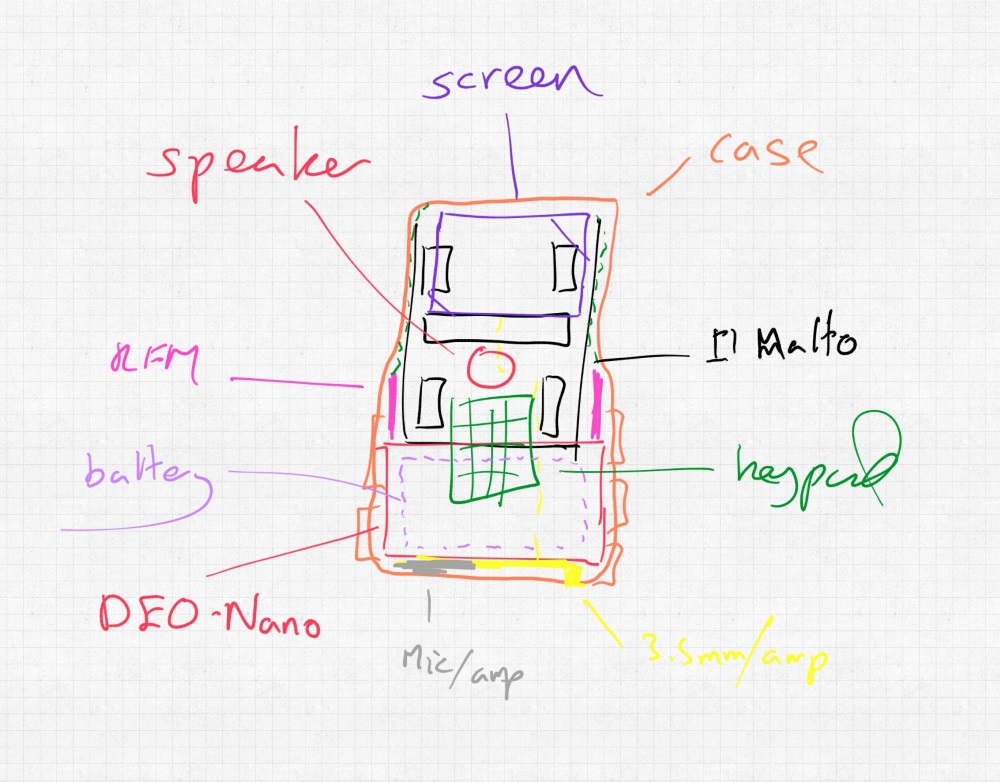 screen
speaker
case
RFM
Il Matto
battery
keypad
DE0-Nano
Mic/amp
3.5mm/amp